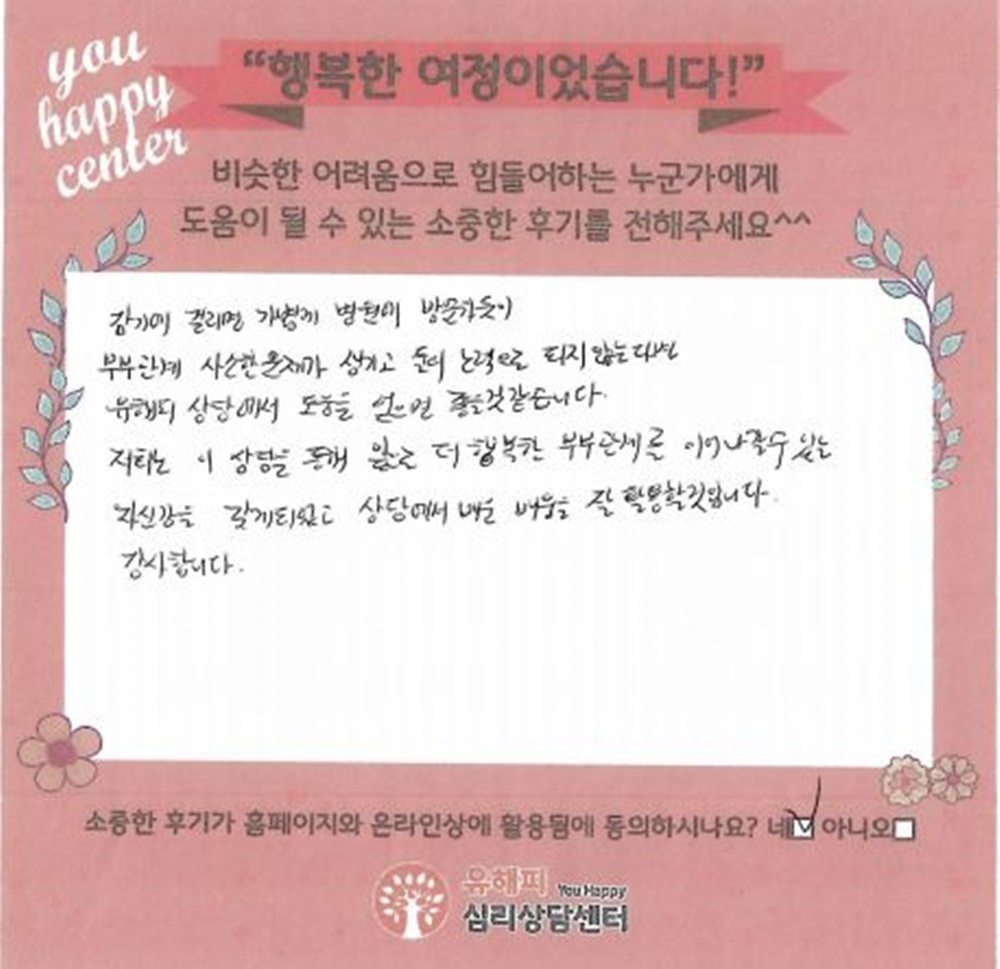 you
happy
center
“행복한 여정이었습니다!”
비슷한 어려움으로 힘들어하는 누군가에게
도움이 될 수 있는 소중한 후기를 전해주세요^^
감기에 걸리면 가볍게 병원에 방문하듯이
부부관계 사소한문제가 생기고 둘의 노력으로 되지않는다면
유해피 상담에서 도움을 얻으면 좋을것같습니다.
저희는 이 상담을 통해 앞으로 더 행복한 부부관계를 이어나갈수있는
자신감을 갖게되었고 상담에서 배운 배움을 잘 활용할것입니다.
감사합니다.
소중한 후기가 홈페이지와 온라인상에 활용됨에 동의하시나요? 네☑ 아니오☐
유해피 You Happy
심리상담센터